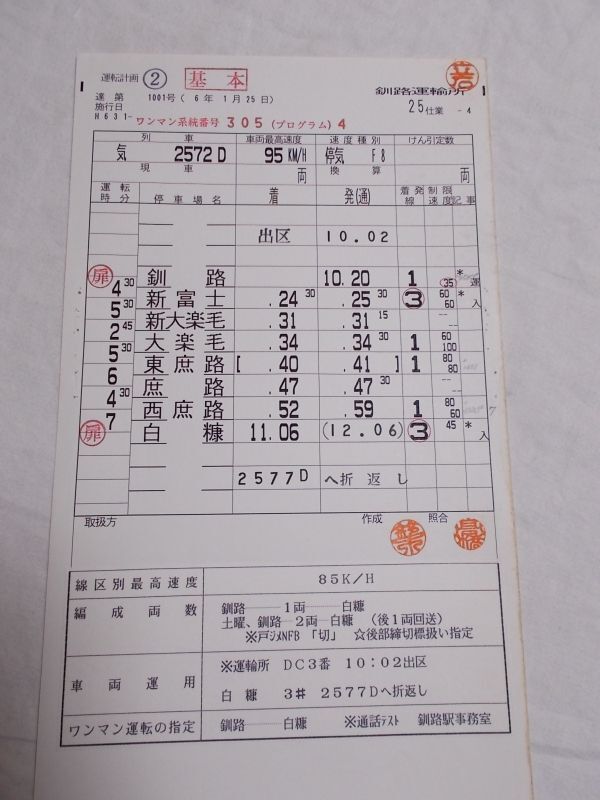 運転計画 ② 基本
釧路運輸所
達 第 1001号 ( 6年 1月 25日 )
施行日
25仕業 -4
H631- ワンマン系統番号 305 (プログラム) 4
列車 車両最高速度 速度種別 けん引定数
気 2572D 95 KM/H 停気 F8
現車 両 換算 両
運転時分 停車場名 着 発(通) 着発線 制限速度 記事
出区 10.02
扉 釧路 10.20 1 35 *
4 30
新富士 .24 30 .25 30 ③ 60 60 * 入
5 30
新大楽毛 .31 .31 15 --
2 45
大楽毛 .34 .34 30 1 60 100
5 30
東庶路 [ .40 .41 ] 1 80 80
6
庶路 .47 .47 30 --
4 30
西庶路 .52 .59 1 80 60
7
扉 白糠 11.06 (12.06) ③ 45 * 入
2577D へ折返し
取扱方 作成 照合
線区別最高速度 85K/H
編成両数 釧路―――1両――白糠
土曜、釧路―2両―白糠 (後1両回送)
※戸ジメNFB 「切」 ☆後部締切標扱い指定
車両運用 ※運輸所 DC3番 10:02出区
白糠 3# 2577Dへ折返し
ワンマン運転の指定 釧路―――白糠 ※通話テスト 釧路駅事務室